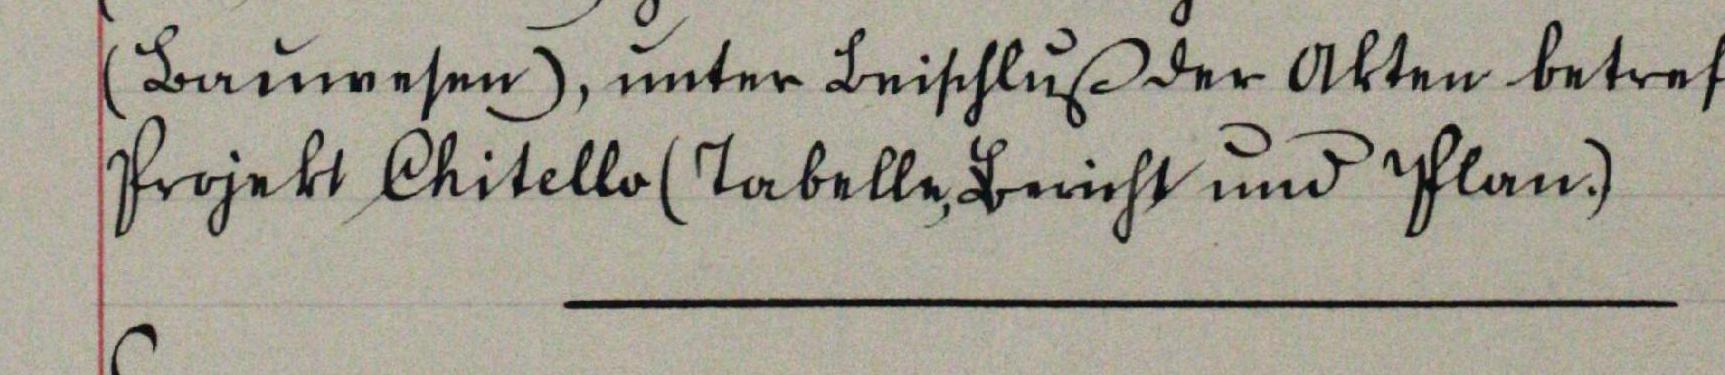 (Bauwesen), unter Beischluß der Akten betref
Projekt Chitello (Tabelle, Bericht und Plan.)